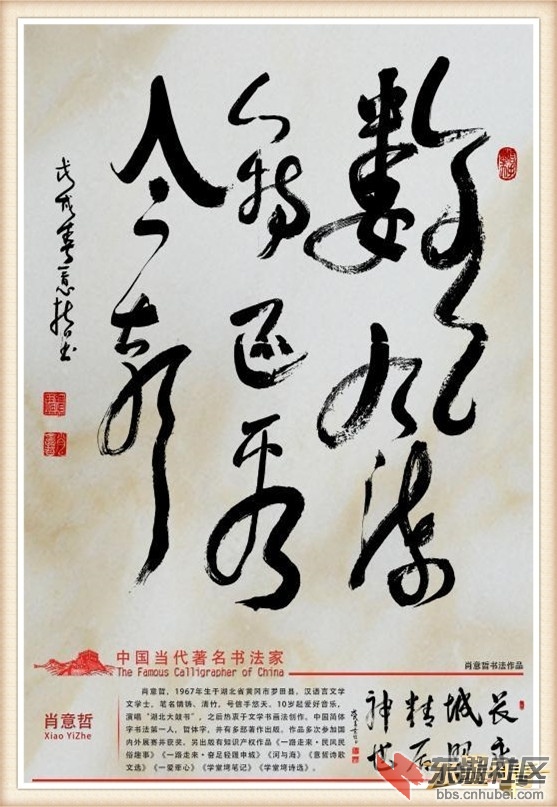 数风流
人物还看
今朝
戊戌春意哲书
中国当代著名书法家
The Famous Calligrapher of China
肖意哲书法作品
肖意哲
Xiao YiZhe
肖意哲，1967年生于湖北省黄冈市罗田县，汉语言文学
文学士，笔名慎铸、清竹，号信手悠天，10岁起爱好音乐，
演唱“湖北大鼓书”，之后热衷于文学书画法创作，中国简体
字书法第一人，哲体字，并有多部著作出版，作品多次参加国
内外展赛并获奖。另出版有知识产权作品《一路走来·民风民
俗趣事》《一路走来·奋足轻蹬申城》《河与海》《意哲诗歌
文选》《一爱牵心》《学堂塆笔记》《学堂塆诗选》。
长城精神
后世
东湖社区
bbs.cnhubei.com